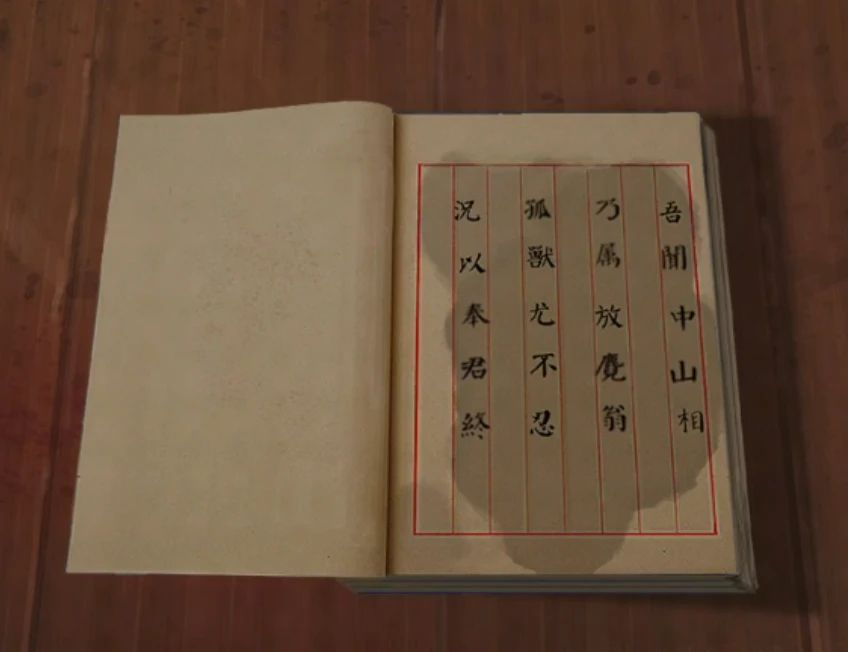 吾聞中山相
乃属放麑翁
孤獸尤不忍
況以奉君終